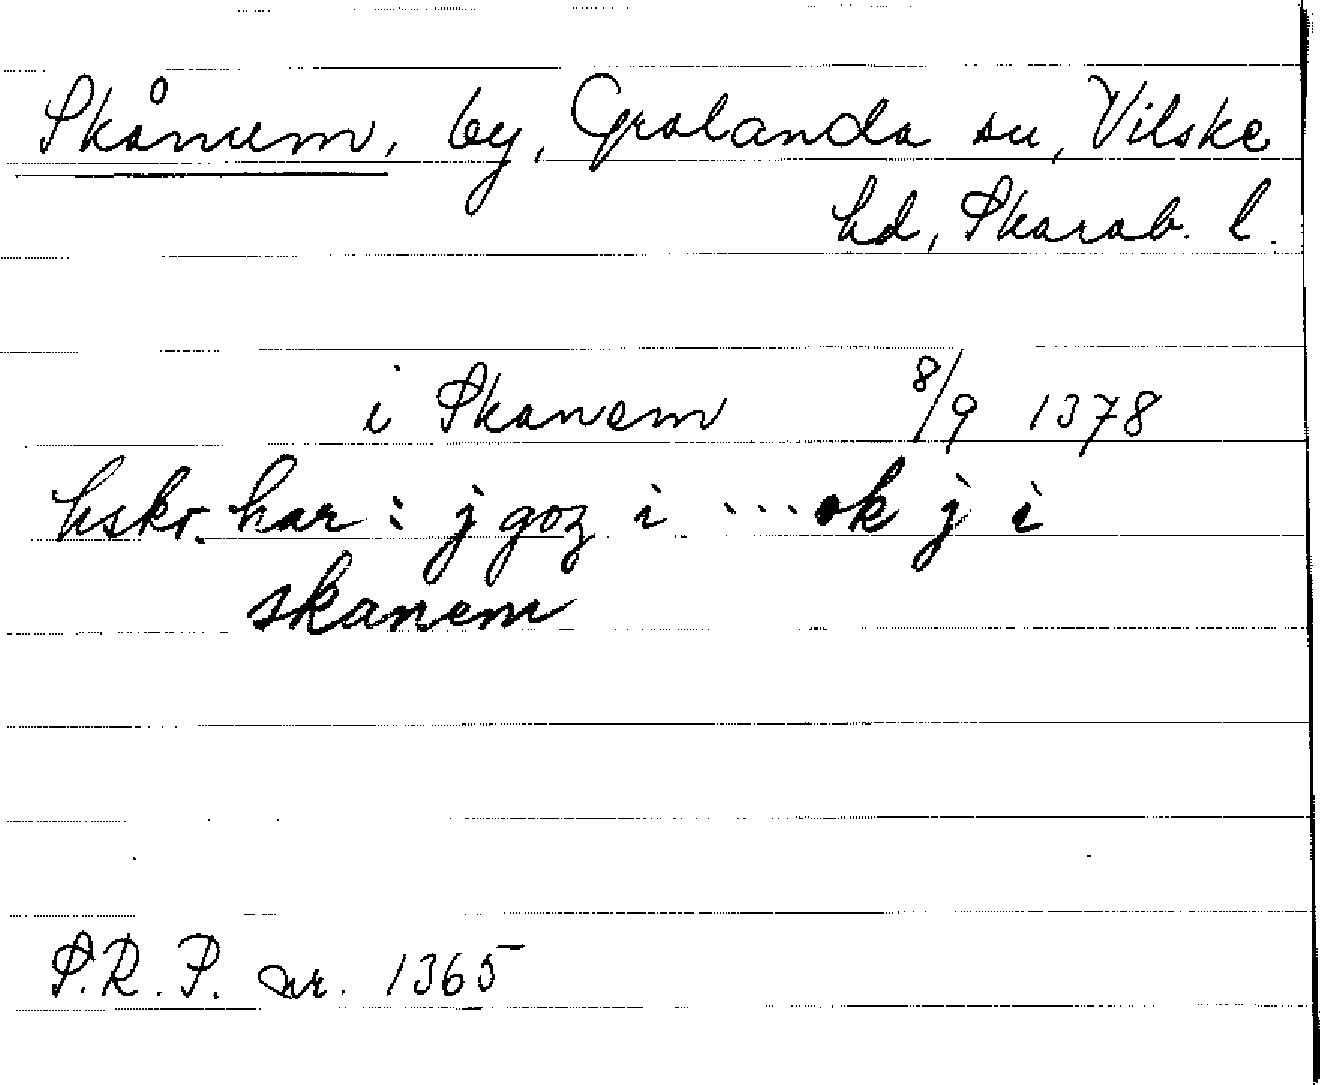 Skånum, by, Grolanda sn, Vilske
hd, Skarab. l.
i Skanem 8/9 1378
hskr. har: j goz i ... ok j i
skanem
S.R.P. nr. 1365